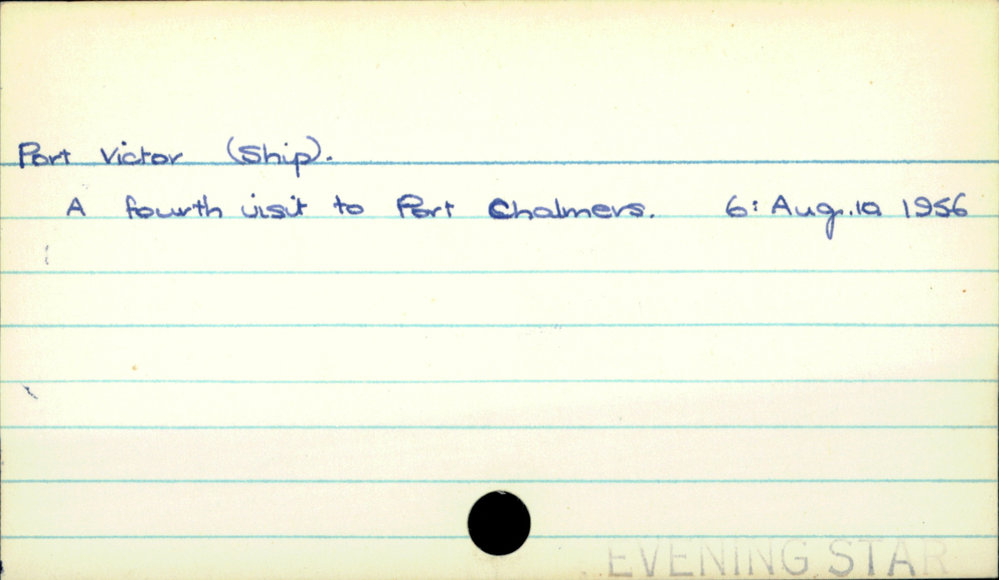 Port Victor (Ship).
A fourth visit to Port Chalmers. 6: Aug. 10 1956
EVENING STAR